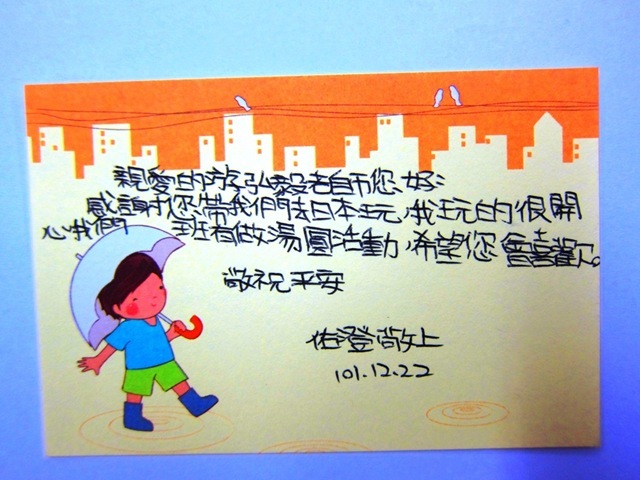 親愛的游弘毅老師您好:
感謝您帶我們去日本玩,我玩的很開
心我們 班有做湯圓活動,希望您會喜歡。
敬祝平安
佑澄敬上
101.12.22